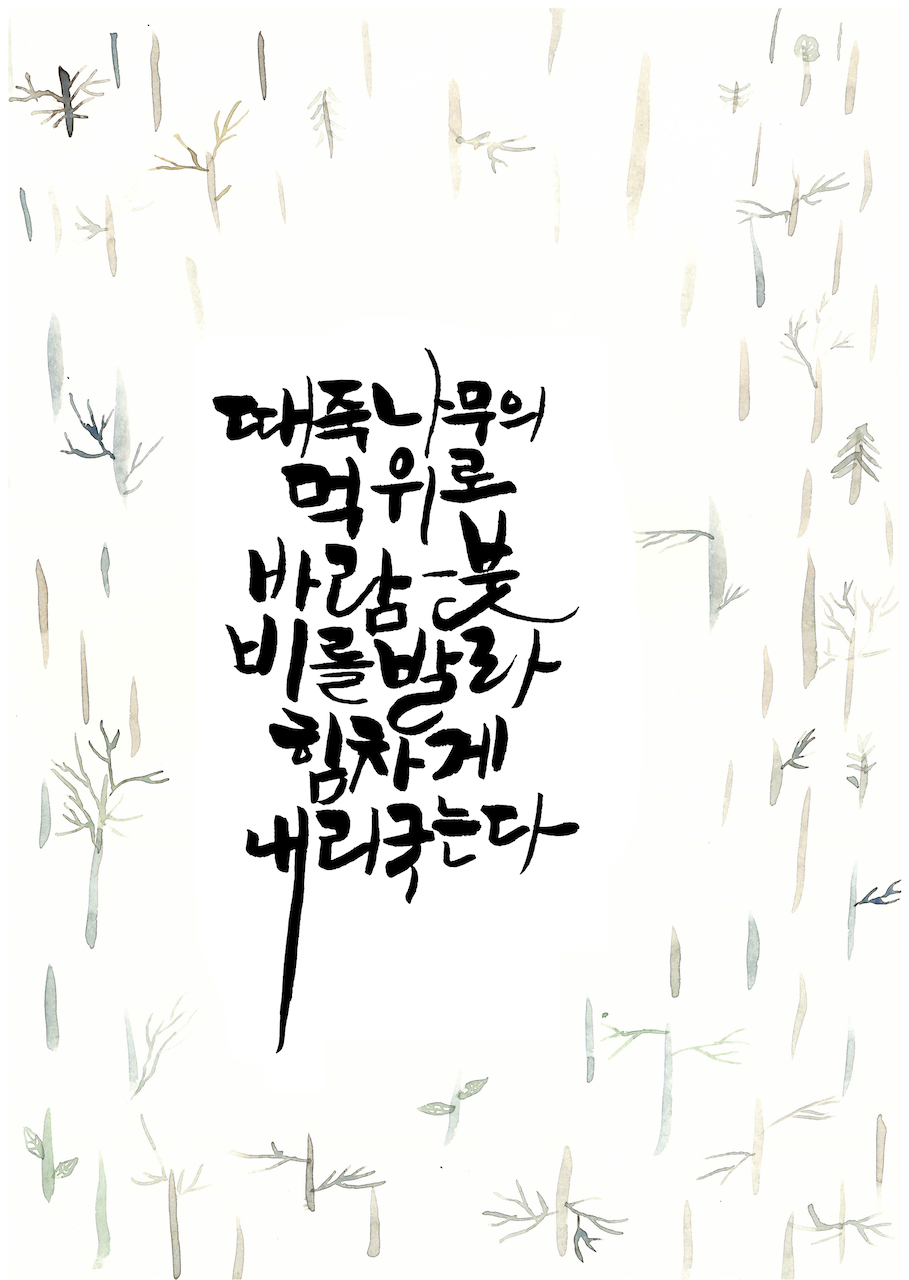 때죽나무의
먹위로
바람-붓
비를발라
힘차게
내리긋는다